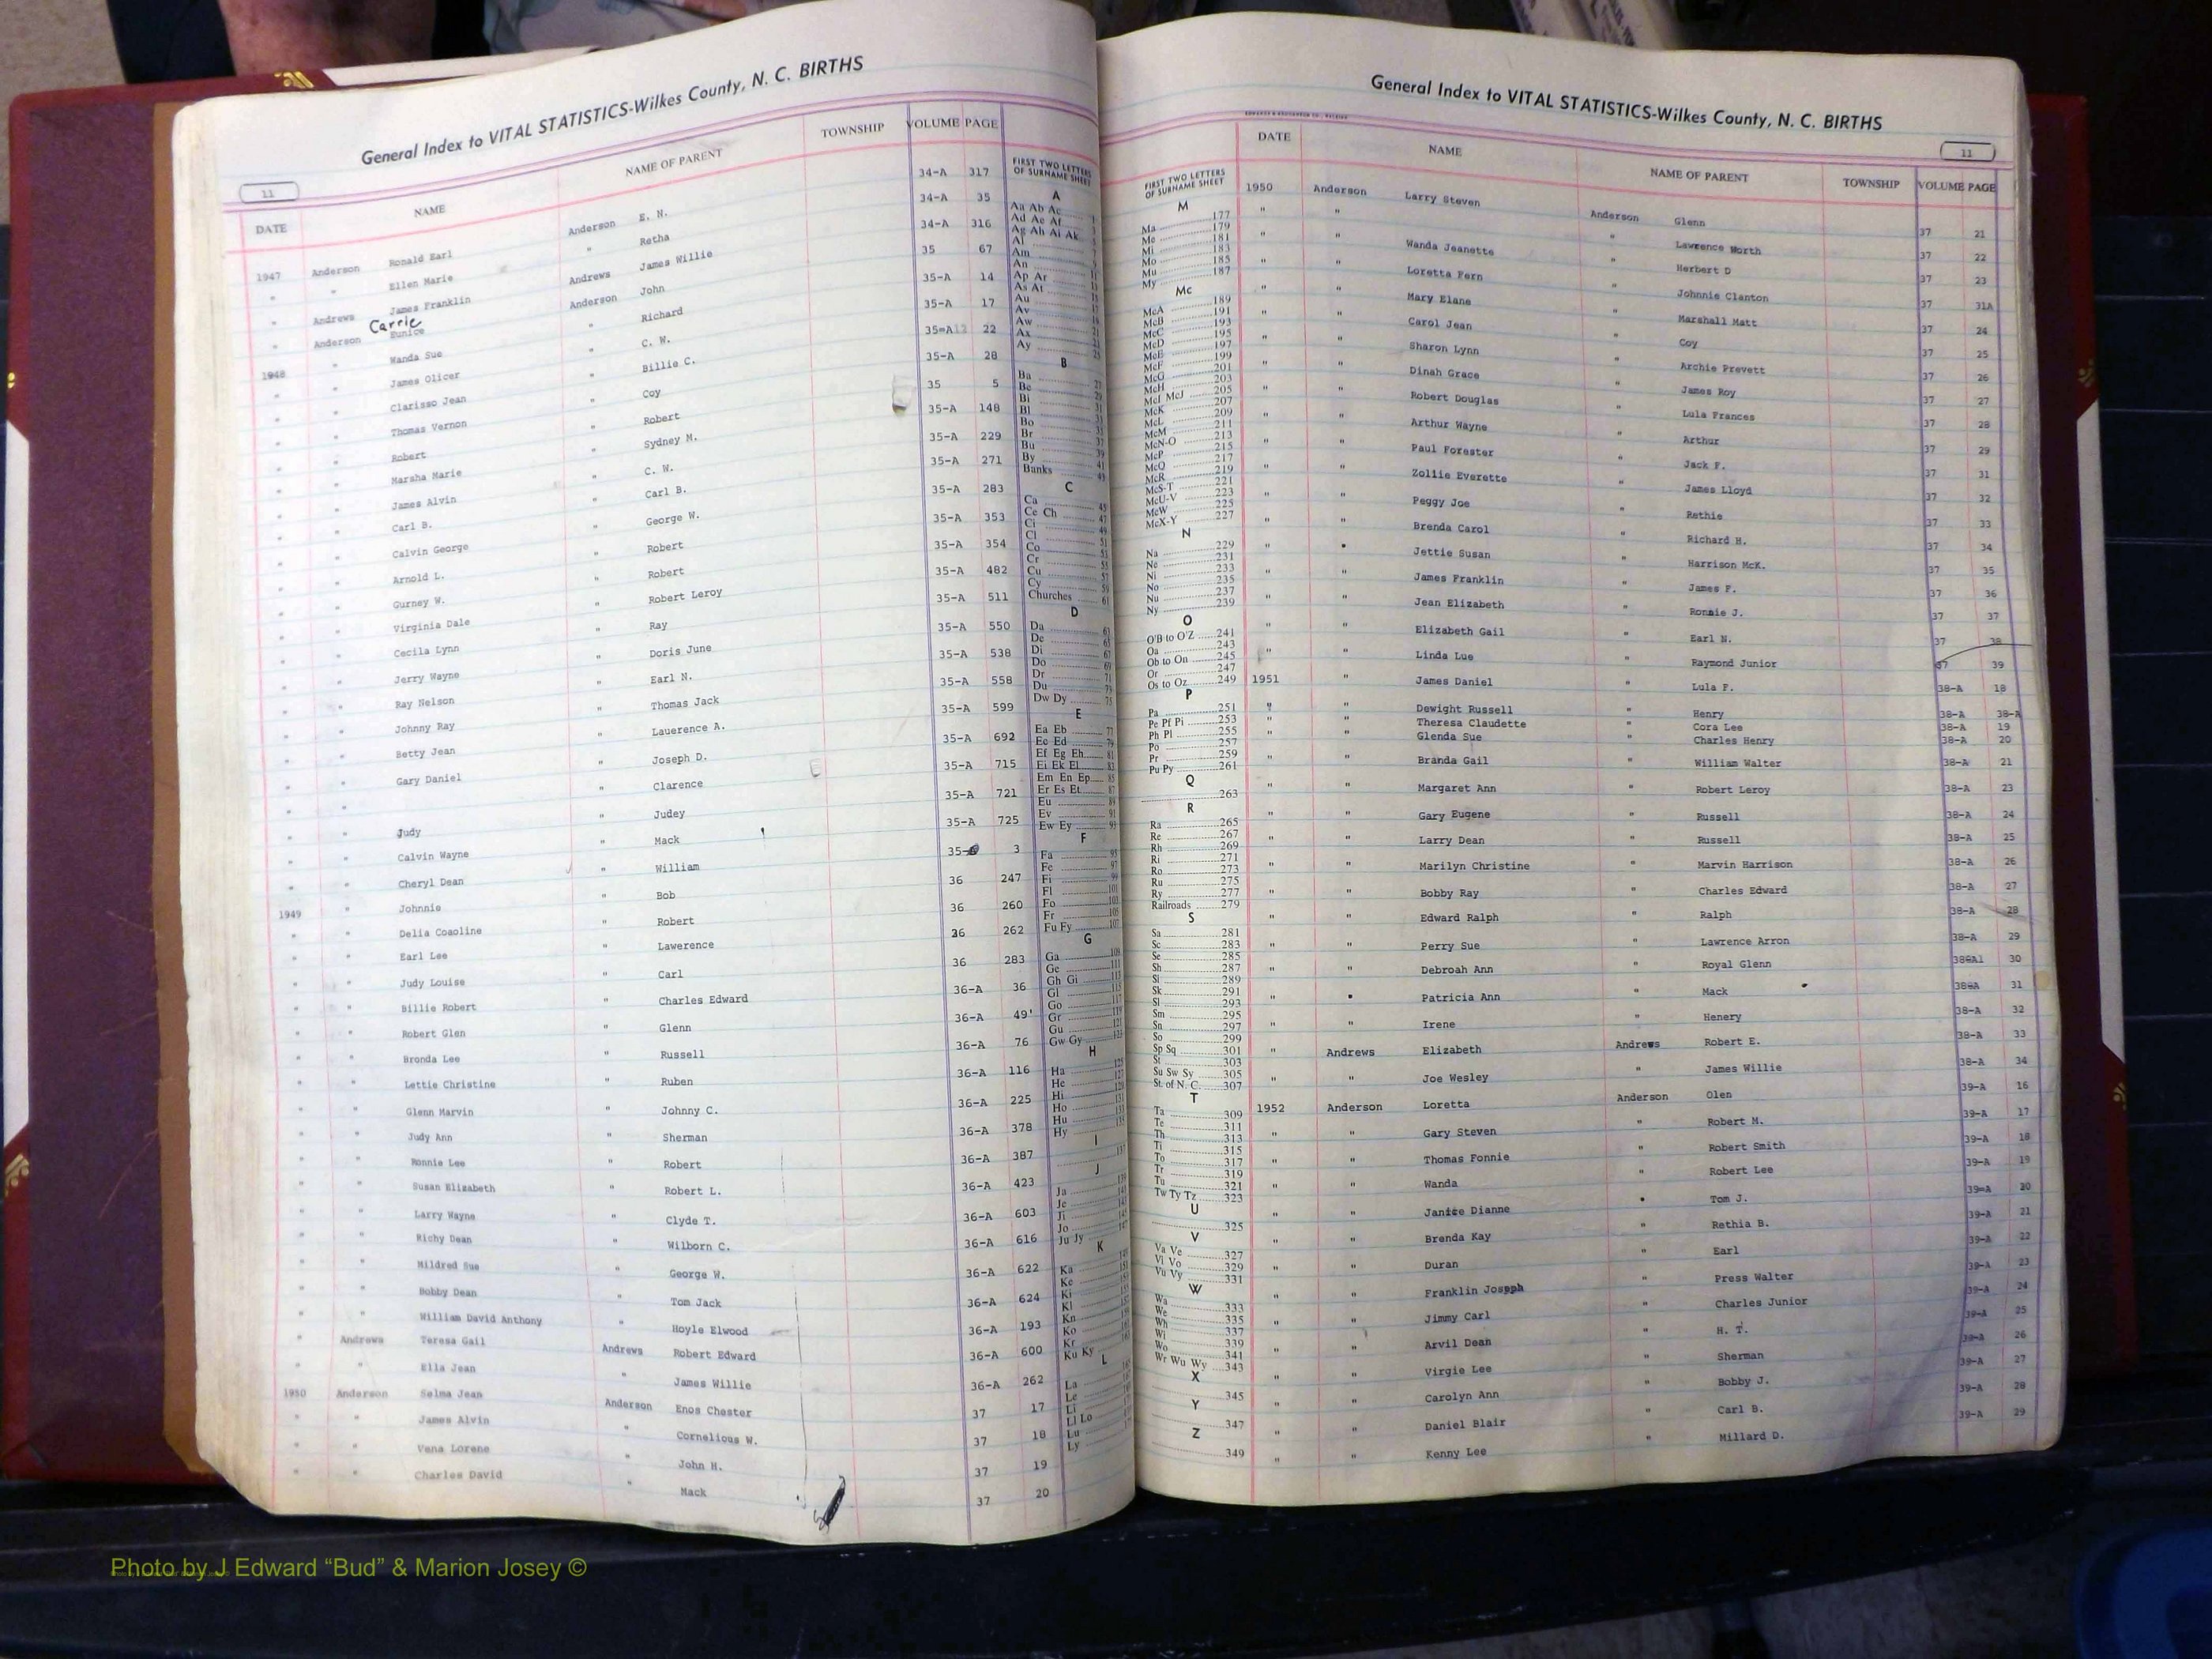 General Index to VITAL STATISTICS-Wilkes County, N. C. BIRTHS
11
DATE NAME NAME OF PARENT TOWNSHIP VOLUME PAGE
1947 Anderson Ronald Earl Anderson E. N. 34-A 317
" " Ellen Marie " Retha 34-A 35
" Andrews James Franklin Andrews James Willie 34-A 316
Carrie
" Anderson Eunice Anderson John 35 67
1948 " Wanda Sue " Richard 35-A 14
" " James Olicer " C. W. 35-A 17
" " Clarisso Jean " Billie C. 35=A 22
" " Thomas Vernon " Coy 35-A 28
" " Robert " Robert 35 5
" " Marsha Marie " Sydney M. 35-A 148
" " James Alvin " C. W. 35-A 229
" " Carl B. " Carl B. 35-A 271
" " Calvin George " George W. 35-A 283
" " Arnold L. " Robert 35-A 353
" " Gurney W. " Robert 35-A 354
" " Virginia Dale " Robert Leroy 35-A 482
" " Cecila Lynn " Ray 35-A 511
" " Jerry Wayne " Doris June 35-A 550
" " Ray Nelson " Earl N. 35-A 538
" " Johnny Ray " Thomas Jack 35-A 558
" " Betty Jean " Lauerence A. 35-A 599
" " Gary Daniel " Joseph D. 35-A 692
" " " Clarence 35-A 715
" " Judy " Judey 35-A 721
" " Calvin Wayne " Mack 35-A 725
" " Cheryl Dean " William 35- 3
1949 " Johnnie " Bob 36 247
" " Delia Coaoline " Robert 36 260
" " Earl Lee " Lawerence 36 262
" " Judy Louise " Carl 36 283
" " Billie Robert " Charles Edward 36-A 36
" " Robert Glen " Glenn 36-A 49'
" " Bronda Lee " Russell 36-A 76
" " Lettie Christine " Ruben 36-A 116
" " Glenn Marvin " Johnny C. 36-A 225
" " Judy Ann " Sherman 36-A 378
" " Ronnie Lee " Robert 36-A 387
" " Susan Elizabeth " Robert L. 36-A 423
" " Larry Wayne " Clyde T. 36-A 603
" " Richy Dean " Wilborn C. 36-A 616
" " Mildred Sue " George W. 36-A 622
" " Bobby Dean " Tom Jack 36-A 624
" " William David Anthony " Hoyle Elwood 36-A 193
" Andrews Teresa Gail Andrews Robert Edward 36-A 600
" " Ella Jean " James Willie 36-A 262
1950 Anderson Selma Jean Anderson Enos Chester 37 17
" " James Alvin " Cornelious W. 37 18
" " Vena Lorene " John H. 37 19
" " Charles David " Mack 37 20
FIRST TWO LETTERS
OF SURNAME SHEET
A
Aa Ab Ac
Ad Ae Af
Ag Ah Ai Ak
Al
Am
An
Ap Ar
As At
Au
Av
Aw
Ax
Ay
B
Ba
Be
Bi
Bl
Bo
Br
Bu
By
Banks
C
Ca
Ce Ch
Ci
Cl
Co
Cr
Cu
Cy
Churches
D
Da
De
Di
Do
Dr
Du
Dw Dy
E
Ea Eb
Ec Ed
Ef Eg Eh
Ei Ek El
Em En Ep
Er Es Et
Eu
Ev
Ew Ey
F
Fa
Fe
Fi
Fl
Fo
Fr
Fu Fy
G
Ga
Ge
Gh Gi
Gl
Go
Gr
Gu
Gw Gy
H
Ha
He
Hi
Ho
Hu
Hy
I
J
Ja
Je
Ji
Jo
Ju Jy
K
Ka
Ke
Ki
Kl
Kn
Ko
Kr
Ku Ky
L
La
Le
Li
Ll Lo
Lu
Ly
General Index to VITAL STATISTICS-Wilkes County, N. C. BIRTHS
11
FIRST TWO LETTERS
OF SURNAME SHEET
M
Ma 177
Me 179
Mi 181
Mo 183
Mu 185
My 187
Mc
McA 189
McB 191
McC 193
McD 195
McE 197
McF 199
McG 201
McH 203
McI McJ 205
McK 207
McL 209
McM 211
McN-O 213
McP 215
McQ 217
McR 219
McS-T 221
McU-V 223
McW 225
McX-Y 227
N
Na 229
Ne 231
Ni 233
No 235
Nu 237
Ny 239
O
O'B to O'Z 241
Oa 243
Ob to On 245
Or 247
Os to Oz 249
P
Pa 251
Pe Pf Pi 253
Ph Pl 255
Po 257
Pr 259
Pu Py 261
Q
263
R
Ra 265
Re 267
Rh 269
Ri 271
Ro 273
Ru 275
Ry 277
Railroads 279
S
Sa 281
Sc 283
Se 285
Sh 287
Si 289
Sk 291
Sl 293
Sm 295
Sn 297
So 299
Sp Sq 301
St 303
Su Sw Sy 305
St. of N. C. 307
T
Ta 309
Te 311
Th 313
Ti 315
To 317
Tr 319
Tu 321
Tw Ty Tz 323
U
325
V
Va Ve 327
Vi Vo 329
Vu Vy 331
W
Wa 333
We 335
Wh 337
Wi 339
Wo 341
Wr Wu Wy 343
X
345
Y
347
Z
349
DATE NAME NAME OF PARENT TOWNSHIP VOLUME PAGE
1950 Anderson Larry Steven Anderson Glenn 37 21
" " " Lawrence Worth 37 22
" " Wanda Jeanette " Herbert D 37 23
" " Loretta Fern " Johnnie Clanton 37 31A
" " Mary Elane " Marshall Matt 37 24
" " Carol Jean " Coy 37 25
" " Sharon Lynn " Archie Prevett 37 26
" " Dinah Grace " James Roy 37 27
" " Robert Douglas " Lula Frances 37 28
" " Arthur Wayne " Arthur 37 29
" " Paul Forester " Jack F. 37 31
" " Zollie Everette " James Lloyd 37 32
" " Peggy Joe " Rethie 37 33
" " Brenda Carol " Richard H. 37 34
" " Jettie Susan " Harrison McK. 37 35
" " James Franklin " James F. 37 36
" " Jean Elizabeth " Ronnie J. 37 37
" " Elizabeth Gail " Earl N. 37 38
" " Linda Lue " Raymond Junior 37 39
1951 " James Daniel " Lula F. 38-A 18
" " Dewight Russell " Henry 38-A 38-A
" " Theresa Claudette " Cora Lee 38-A 19
" " Glenda Sue " Charles Henry 38-A 20
" " Branda Gail " William Walter 38-A 21
" " Margaret Ann " Robert Leroy 38-A 23
" " Gary Eugene " Russell 38-A 24
" " Larry Dean " Russell 38-A 25
" " Marilyn Christine " Marvin Harrison 38-A 26
" " Bobby Ray " Charles Edward 38-A 27
" " Edward Ralph " Ralph 38-A 28
" " Perry Sue " Lawrence Arron 38-A 29
" " Debroah Ann " Royal Glenn 30
" " Patricia Ann " Mack 31
" " Irene " Henery 38-A 32
" Andrews Elizabeth Andrews Robert E. 38-A 33
" " Joe Wesley " James Willie 38-A 34
1952 Anderson Loretta Anderson Olen 39-A 16
" " Gary Steven " Robert M. 39-A 17
" " Thomas Fonnie " Robert Smith 39-A 18
" " Wanda " Robert Lee 39-A 19
" " Janice Dianne " Tom J. 39-A 20
" " Brenda Kay " Rethia B. 39-A 21
" " Duran " Earl 39-A 22
" " Franklin Joseph " Press Walter 39-A 23
" " Jimmy Carl " Charles Junior 39-A 24
" " Arvil Dean " H. T. 39-A 25
" " Virgie Lee " Sherman 39-A 26
" " Carolyn Ann " Bobby J. 39-A 27
" " Daniel Blair " Carl B. 39-A 28
" " Kenny Lee " Millard D. 39-A 29
Photo by J Edward “Bud” & Marion Josey ©